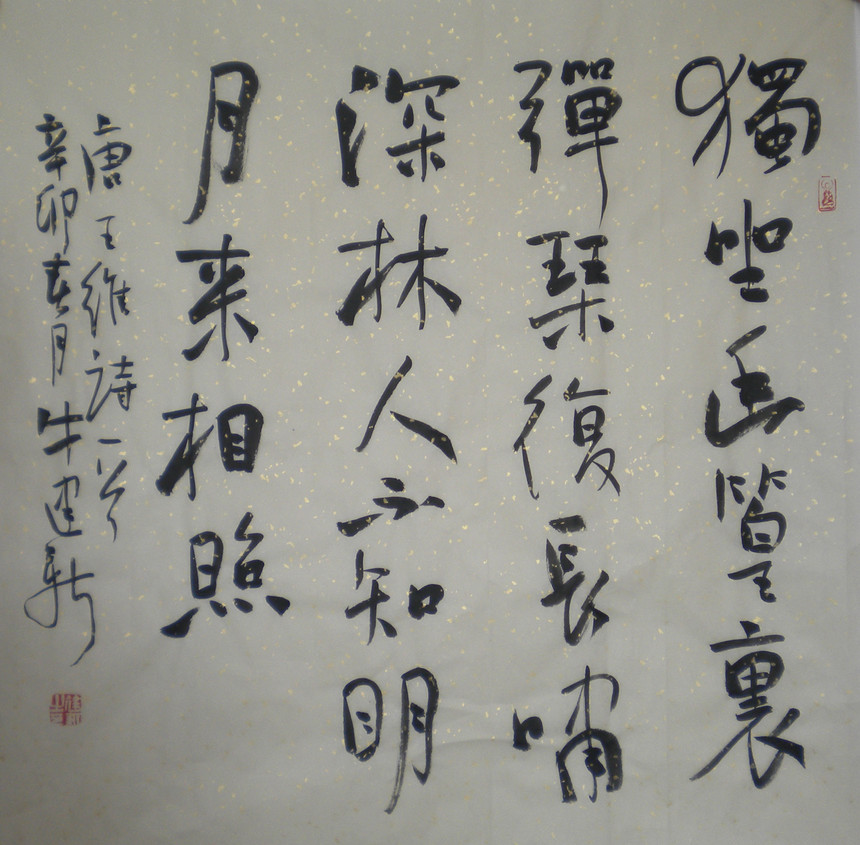 獨坐幽篁裏
彈琴復長嘯
深林人不知明
月来相照
唐王維詩一首
辛卯春月牛建新